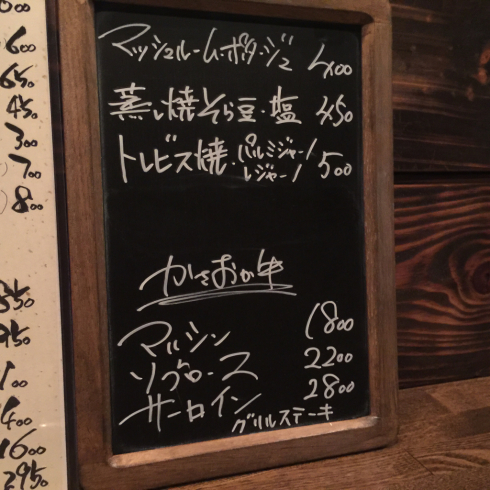 マッシュルーム・ポタージュ 400
蒸し焼そら豆・塩 450
トレビス焼・パルミジャーノ
レジャーノ 500
かさおか牛
マルシン 1800
ソブロース 2200
サーロイン 2800
グリルステーキ
600
650
450
300
700
800
350
950
100
400
1600
2950